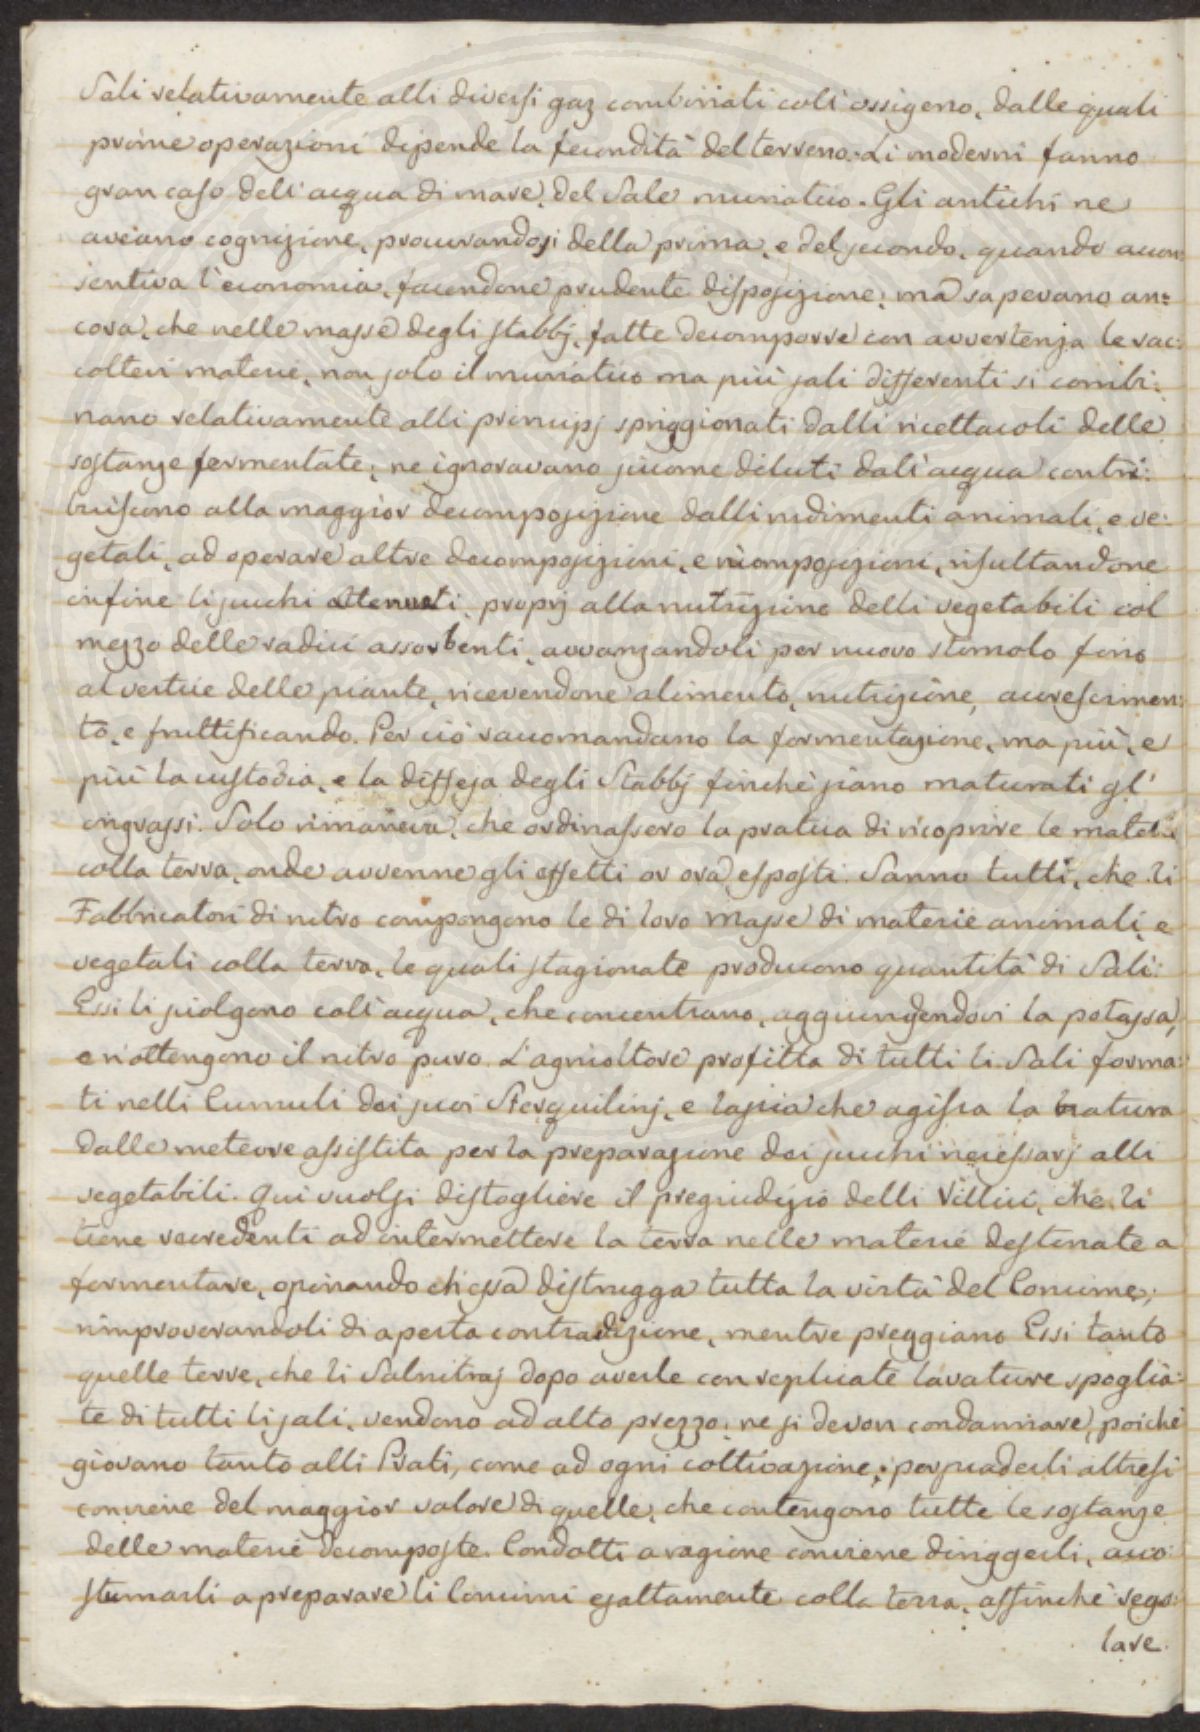 Sali relativamente alli diversi gaz combinati coll'ossigeno, dalle quali
prime operazioni dipende la fecondità del terreno. Li moderni fanno
gran caso dell'acqua di mare, del Sale muriatico. Gli antichi ne
aveano cognizione, procurandosi della prima, e del secondo, quando accon:
sentiva l'economia, facendone prudente disposizione; ma sapevano an:
cora, che nelle masse degli stabbj, fatte decomporre con avvertenza le rac:
colteri materie, non solo il muriatico ma più sali differenti si combi:
nano relativamente alli principj spriggionati dalli ricettacoli delle
sostanze fermentate; ne ignoravano siccome diluti dall'acqua contri:
buiscono alla maggior decomposizione dalli rudimenti animali, e ve:
getali, ad operare altre decomposizioni, e ricomposizioni, risultandone
infine li succhi attenuati proprj alla nutrizione delli vegetabili col
mezzo delle radici assorbenti, avvanzandoli per nuovo stimolo fino
al vertice delle piante, ricevendone alimento, nutrizione, accrescimen:
to, e fruttificando. Per ciò raccomandano la formentazione, ma più, e
più la custodia, e la diffesa degli Stabbj finchè siano maturati gl'
ingrassi. Solo rimaneva, che ordinassero la pratica di ricoprire le materie
colla terra, onde avvenne gli effetti or ora esposti. Sanno tutti, che li
Fabbricatori di nitro compongono le di loro masse di materie animali, e
vegetali colla terra, le quali stagionate producono quantità di Sali:
Essi li sciolgono coll'acqua, che concentrano, aggiungendovi la potassa,
e n'ottengono il nitro puro. L'agricoltore profitta di tutti li Sali forma:
ti nelli Cumuli dei suoi Sterquilinj, e lascia che agisca la natura
dalle meteore assistita per la preparazione dei succhi necessarj alli
vegetabili. Qui vuolsi distogliere il pregiudizio delli Villici, che li
tiene recredenti ad intermettere la terra nelle materie destinate a
formentare, opinando ch'essa distrugga tutta la virtù del Concime;
rimproverandoli di aperta contradizione, mentre preggiano Essi tanto
quelle terre, che li Salnitraj dopo averle con replicate lavature spoglia:
te di tutti li sali, vendono ad alto prezzo; ne si devon condannare, poichè
giovano tanto alli Prati, come ad ogni coltivazione; persuaderli altresì
conviene del maggior valore di quelle, che contengono tutte le sostanze
delle materie decomposte. Condotti a ragione conviene diriggerli, acco:
stumarli a preparare li Concimi esattamente colla terra, affinchè rego:
lare